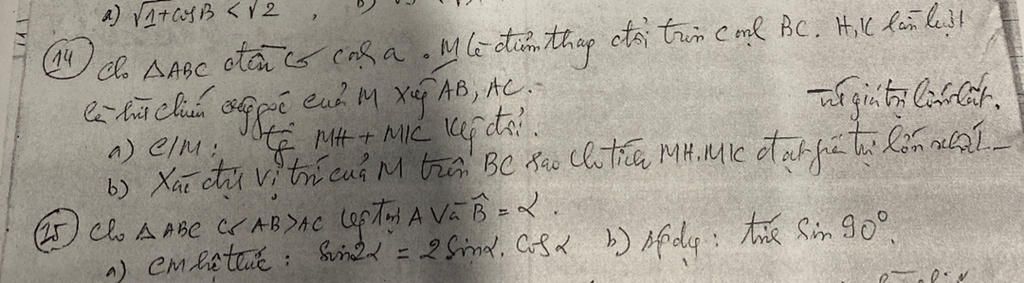 a) √1+cosB < √2 , b)
(14) Cho △ABC đều có cạnh a. M là điểm thay đổi trên cạnh BC. H, K lần lượt
là hình chiếu vuông góc của M xuống AB, AC.
a) C/M: tổng MH + MK không đổi.
b) Xác định vị trí của M trên BC sao cho tích MH.MK đạt giá trị lớn nhất.
(25) Cho △ABC có AB > AC vuông tại A và B̂ = α.
a) CM hệ thức: Sin2α = 2Sinα. Cosα b) Áp dụng: tính Sin 90°.